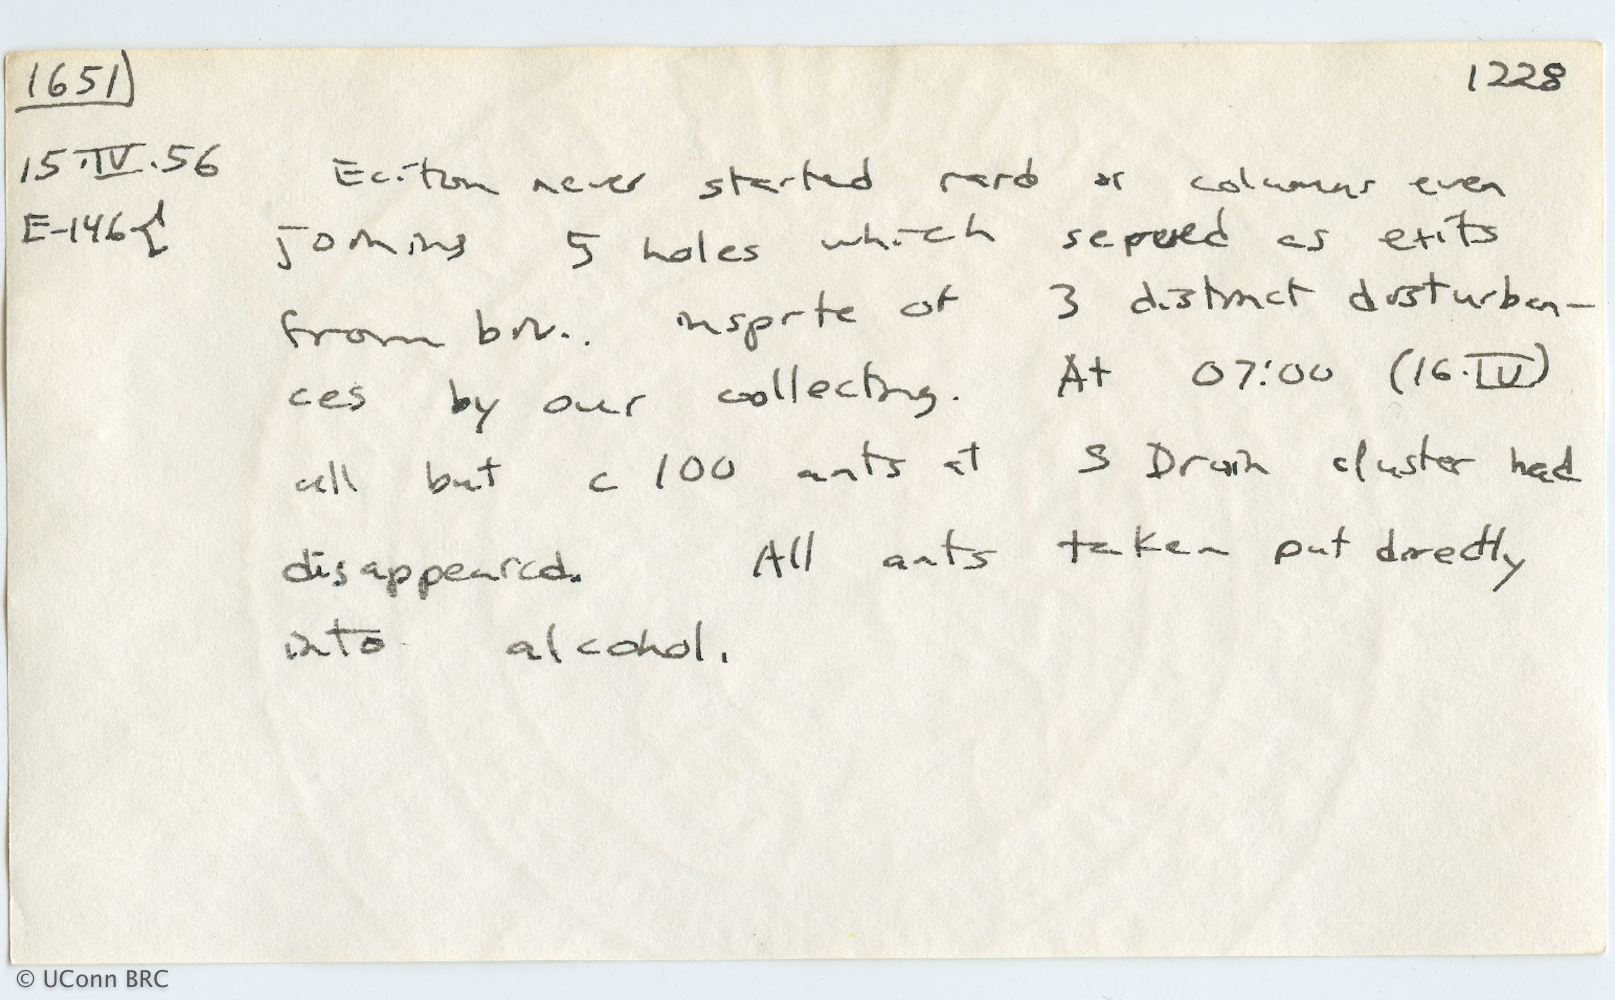 1651) 1228
15.IV.56 Eciton never started raid or columns even
E-146 joining 5 holes which served as exits
from biv. inspite of 3 distinct disturban-
ces by our collecting. At 07:00 (16.IV)
all but c 100 ants at S Drain cluster had
disappeared. All ants taken put directly
into alcohol.
© UConn BRC